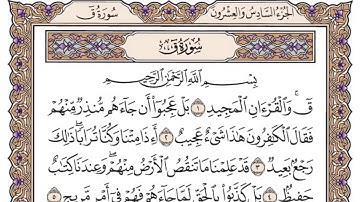 الجزء السادس والعشرون سورة ق
سورة ق
بسم الله الرحمن الرحيم
قٓ ۚ وَالْقُرْءَانِ الْمَجِيدِ ۝١ بَلْ عَجِبُوٓا۟ أَن جَآءَهُم مُّنذِرٌ مِّنْهُمْ
فَقَالَ الْكَٰفِرُونَ هَٰذَا شَىْءٌ عَجِيبٌ ۝٢ أَءِذَا مِتْنَا وَكُنَّا تُرَابًا ۖ ذَٰلِكَ
رَجْعٌۢ بَعِيدٌ ۝٣ قَدْ عَلِمْنَا مَا تَنقُصُ الْأَرْضُ مِنْهُمْ ۖ وَعِندَنَا كِتَٰبٌ
حَفِيظٌۢ ۝٤ بَلْ كَذَّبُوا۟ بِالْحَقِّ لَمَّا جَآءَهُمْ فَهُمْ فِىٓ أَمْرٍ مَّرِيجٍ ۝٥